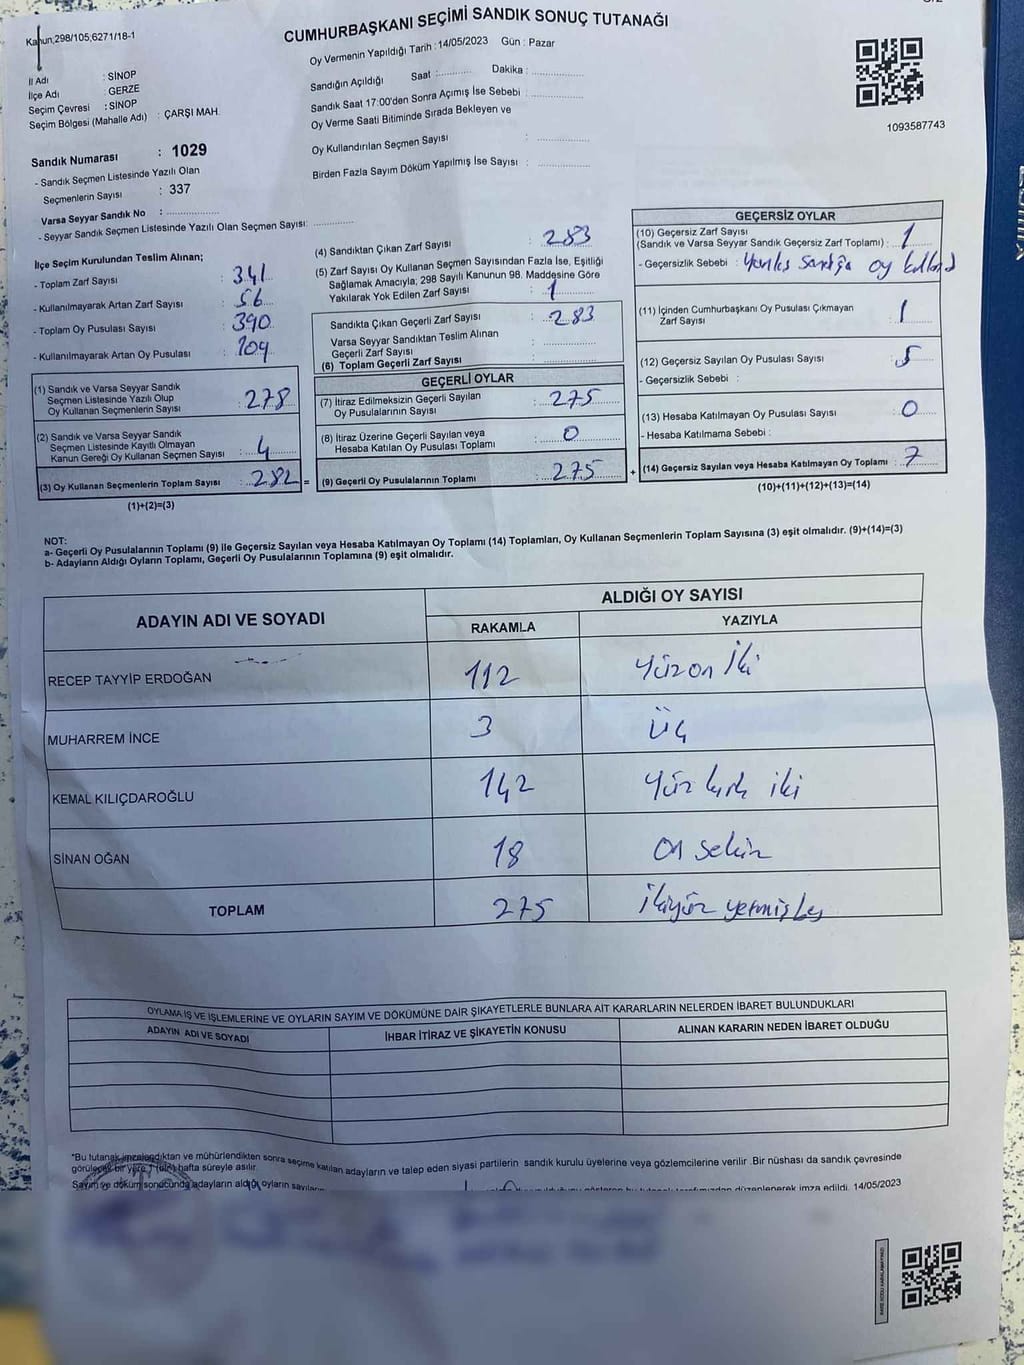 Kanun;298/105;6271/18-1
CUMHURBAŞKANI SEÇİMİ SANDIK SONUÇ TUTANAĞI
Oy Vermenin Yapıldığı Tarih : 14/05/2023 Gün : Pazar
İl Adı : SİNOP
İlçe Adı : GERZE
Seçim Çevresi : SİNOP
Seçim Bölgesi (Mahalle Adı) : ÇARŞI MAH.
Sandık Numarası : 1029
- Sandık Seçmen Listesinde Yazılı Olan
Seçmenlerin Sayısı : 337
Varsa Seyyar Sandık No : ..................
- Seyyar Sandık Seçmen Listesinde Yazılı Olan Seçmen Sayısı: .............
Sandığın Açıldığı Saat :........... Dakika : ................
Sandık Saat 17:00'den Sonra Açımış İse Sebebi : ................
Oy Verme Saati Bitiminde Sırada Bekleyen ve
Oy Kullandırılan Seçmen Sayısı : ................
Birden Fazla Sayım Döküm Yapılmış İse Sayısı : ................
1093587743
İlçe Seçim Kurulundan Teslim Alınan;
- Toplam Zarf Sayısı : 341
- Kullanılmayarak Artan Zarf Sayısı : 56
- Toplam Oy Pusulası Sayısı : 390
- Kullanılmayarak Artan Oy Pusulası : 109
(1) Sandık ve Varsa Seyyar Sandık
Seçmen Listesinde Yazılı Olup
Oy Kullanan Seçmenlerin Sayısı : 278
(2) Sandık ve Varsa Seyyar Sandık
Seçmen Listesinde Kayıtlı Olmayan
Kanun Gereği Oy Kullanan Seçmen Sayısı : 4
(3) Oy Kullanan Seçmenlerin Toplam Sayısı : 282 =
(1)+(2)=(3)
(4) Sandıktan Çıkan Zarf Sayısı : 283
(5) Zarf Sayısı Oy Kullanan Seçmen Sayısından Fazla İse, Eşitliği
Sağlamak Amacıyla; 298 Sayılı Kanunun 98. Maddesine Göre
Yakılarak Yok Edilen Zarf Sayısı : 1
Sandıkta Çıkan Geçerli Zarf Sayısı : 283
Varsa Seyyar Sandıktan Teslim Alınan
Geçerli Zarf Sayısı : ................
(6) Toplam Geçerli Zarf Sayısı : ................
GEÇERLİ OYLAR
(7) İtiraz Edilmeksizin Geçerli Sayılan
Oy Pusulalarının Sayısı : 275
(8) İtiraz Üzerine Geçerli Sayılan veya
Hesaba Katılan Oy Pusulaları Toplamı : 0
(9) Geçerli Oy Pusulalarının Toplamı : 275 +
GEÇERSİZ OYLAR
(10) Geçersiz Zarf Sayısı
(Sandık ve Varsa Seyyar Sandık Geçersiz Zarf Toplamı) : 1
- Geçersizlik Sebebi : Yanlış Sandığa oy
(11) İçinden Cumhurbaşkanı Oy Pusulası Çıkmayan
Zarf Sayısı : 1
(12) Geçersiz Sayılan Oy Pusulası Sayısı : 5
- Geçersizlik Sebebi :
(13) Hesaba Katılmayan Oy Pusulası Sayısı : 0
- Hesaba Katılmama Sebebi :
(14) Geçersiz Sayılan veya Hesaba Katılmayan Oy Toplamı : 7
(10)+(11)+(12)+(13)=(14)
NOT:
a- Geçerli Oy Pusulalarının Toplamı (9) ile Geçersiz Sayılan veya Hesaba Katılmayan Oy Toplamı (14) Toplamları, Oy Kullanan Seçmenlerin Toplam Sayısına (3) eşit olmalıdır. (9)+(14)=(3)
b- Adayların Aldığı Oyların Toplamı, Geçerli Oy Pusulalarının Toplamına (9) eşit olmalıdır.
ADAYIN ADI VE SOYADI ALDIĞI OY SAYISI
RAKAMLA YAZIYLA
RECEP TAYYİP ERDOĞAN 112 Yüzon İki
MUHARREM İNCE 3 Üç
KEMAL KILIÇDAROĞLU 142 Yüz kırk iki
SİNAN OĞAN 18 On sekiz
TOPLAM 275 İkiyüz yetmişbeş
OYLAMA İŞ VE İŞLEMLERİNE VE OYLARIN SAYIM VE DÖKÜMÜNE DAİR ŞİKAYETLERLE BUNLARA AİT KARARLARIN NELERDEN İBARET BULUNDUKLARI
ADAYIN ADI VE SOYADI İHBAR İTİRAZ VE ŞİKAYETİN KONUSU ALINAN KARARIN NEDEN İBARET OLDUĞU
*Bu tutanak imzalandıktan ve mühürlendikten sonra seçime katılan adayların ve talep eden siyasi partilerin sandık kurulu üyelerine veya gözlemcilerine verilir .Bir nüshası da sandık çevresinde
görülecek bir yere 1 (bir) hafta süreyle asılır.
Sayım ve döküm sonucunda adayların aldığı oyların düzenlenerek imza edildi. 14/05/2023